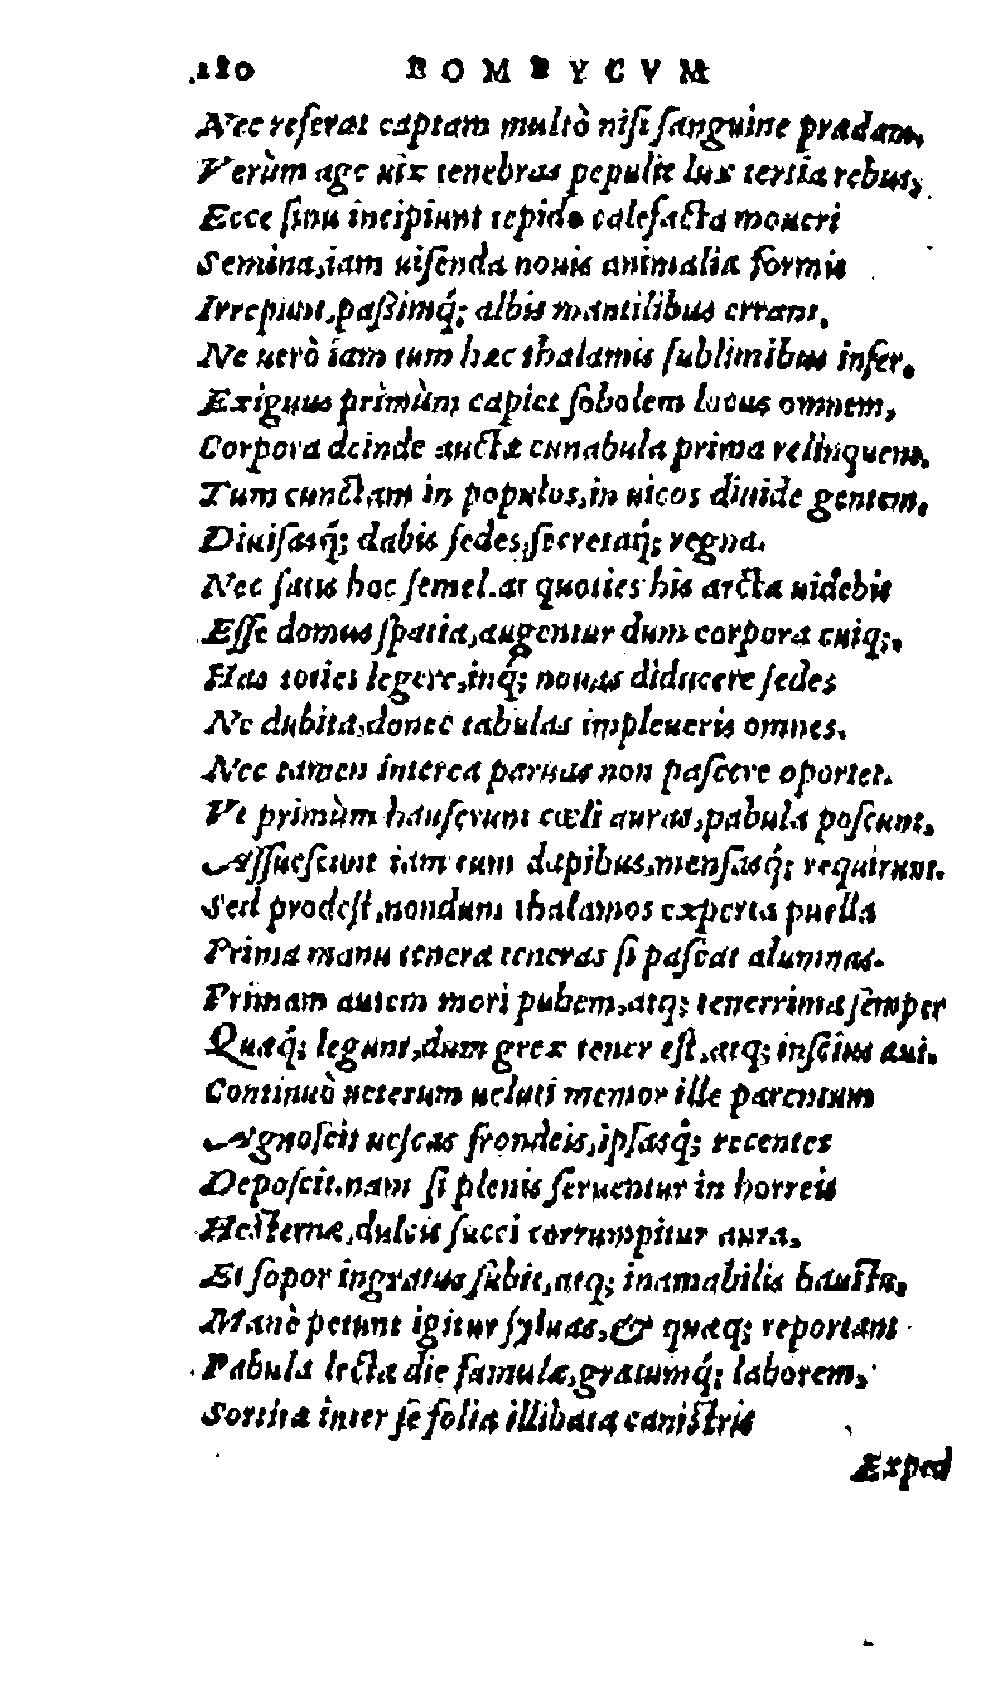 180 BOMBYCVM
Nec referat captam multò nisi sanguine prædam,
Verùm age uix tenebras pepulit lux tertia rebus,
Ecce sinu incipiunt tepido calefacta moueri
Semina, iam uisenda nouis animalia formis
Irrepunt, paßimq́; albis mantilibus errant.
Ne uerò iam tum hæc thalamis sublimibus infer.
Exiguus prìmùm capiet sobolem locus omnem,
Corpora deinde auctæ cunabula prima relinquent.
Tum cunctam in populos, in uicos diuide gentem.
Diuisasq́; dabis sedes, secretaq́; regna.
Nec satis hoc semel. at quoties his arcta uidebis
Esse domus spatia, augentur dum corpora cuiq;.
Has toties legere, inq́; nouas diducere sedes
Ne dubita, donec tabulas impleueris omnes.
Nec tamen interea paruas non pascere oportet.
Vt primùm hauserunt cœli auras, pabula poscunt.
Assuescunt iam tum dapibus, mensasq́; requirunt.
Sed prodest, nondum thalamos experta puella
Prima manu tenera teneras si pascat alumnas.
Primam autem mori pubem, atq; tenerrima semper
Quæq́; legunt, dum grex tener est, atq; inscius æui.
Continuò ueterum ueluti memor ille parentum
Agnoscit uescas frondeis, ipsasq́; recentes
Deposcit. nam si plenis seruentur in horreis
Hesternæ, dulcis succi corrumpitur aura.
Et sopor ingratus subit, atq; inamabilis haustu.
Manè petunt igitur syluas, & quæq; reportant
Pabula lecta die famulæ, gratumq́; laborem,
Sortitæ inter se folia illibata canistris
Exped